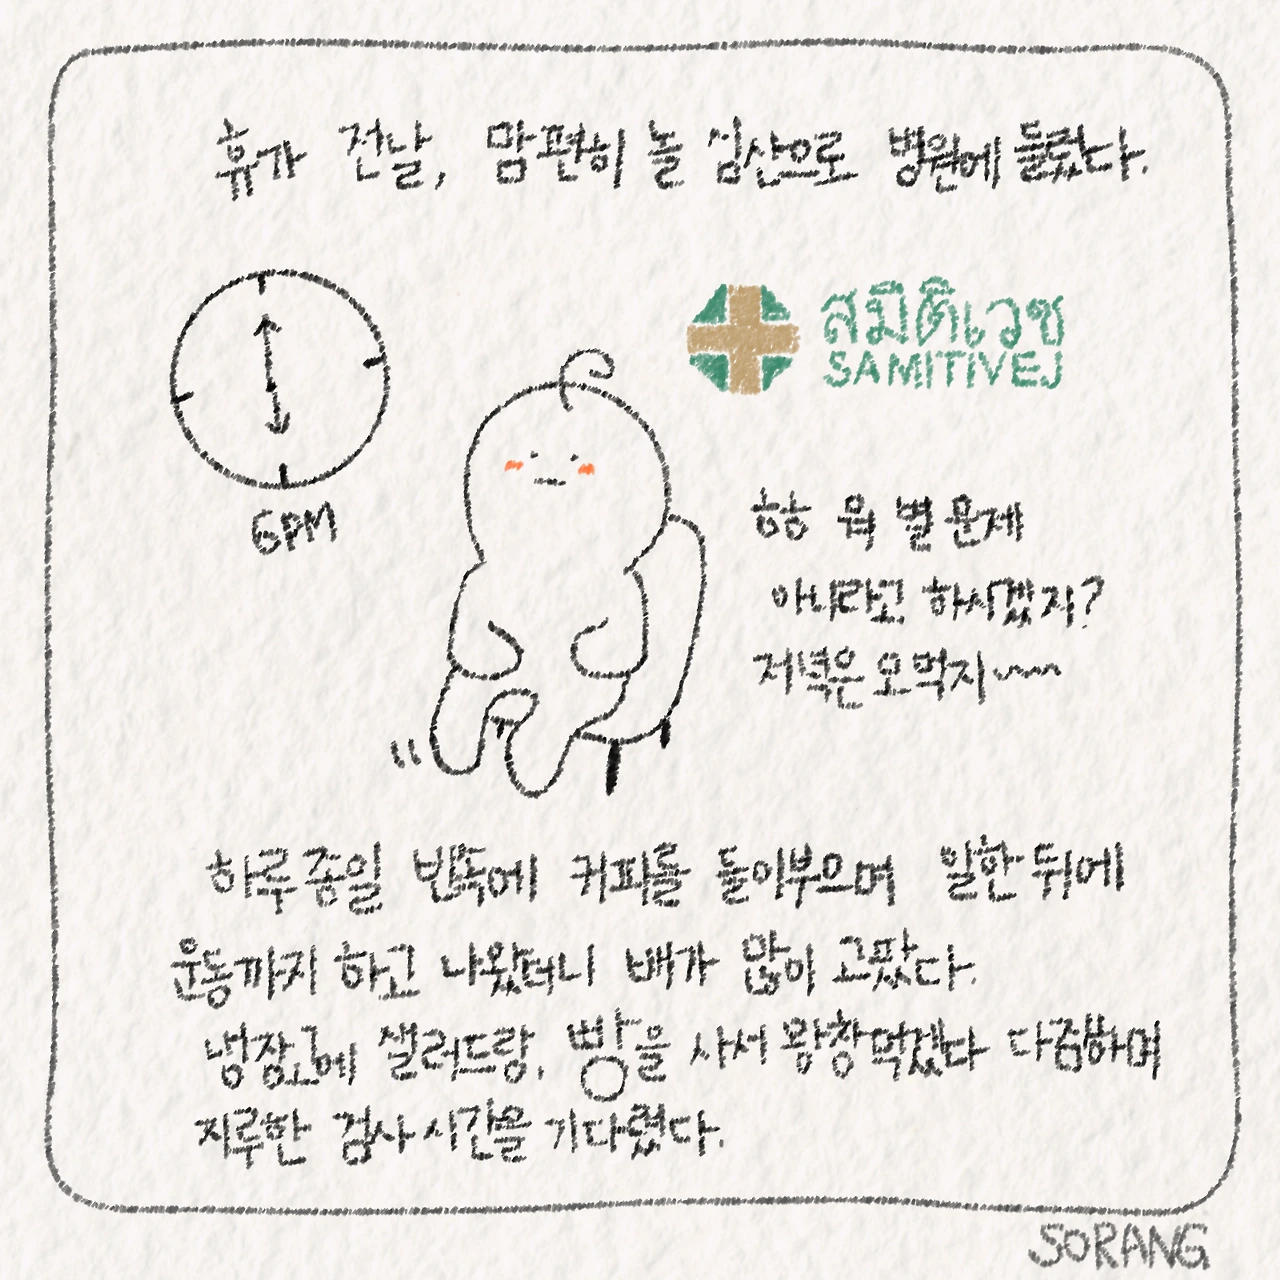 휴가 전날, 맘편히 놀 심산으로 병원에 들렀다.
สมิติเวช
SAMITIVEJ
6PM
하하 뭐 별 문제
아니라고 하시겠지?
저녁은 모먹지~~
하루종일 빈속에 커피를 들이부으며 일한 뒤에
운동까지 하고 나왔더니 배가 많이 고팠다.
냉장고에 샐러드랑, 빵을 사서 왕창먹겠다 다짐하며
지루한 검사 시간을 기다렸다.
SORANG